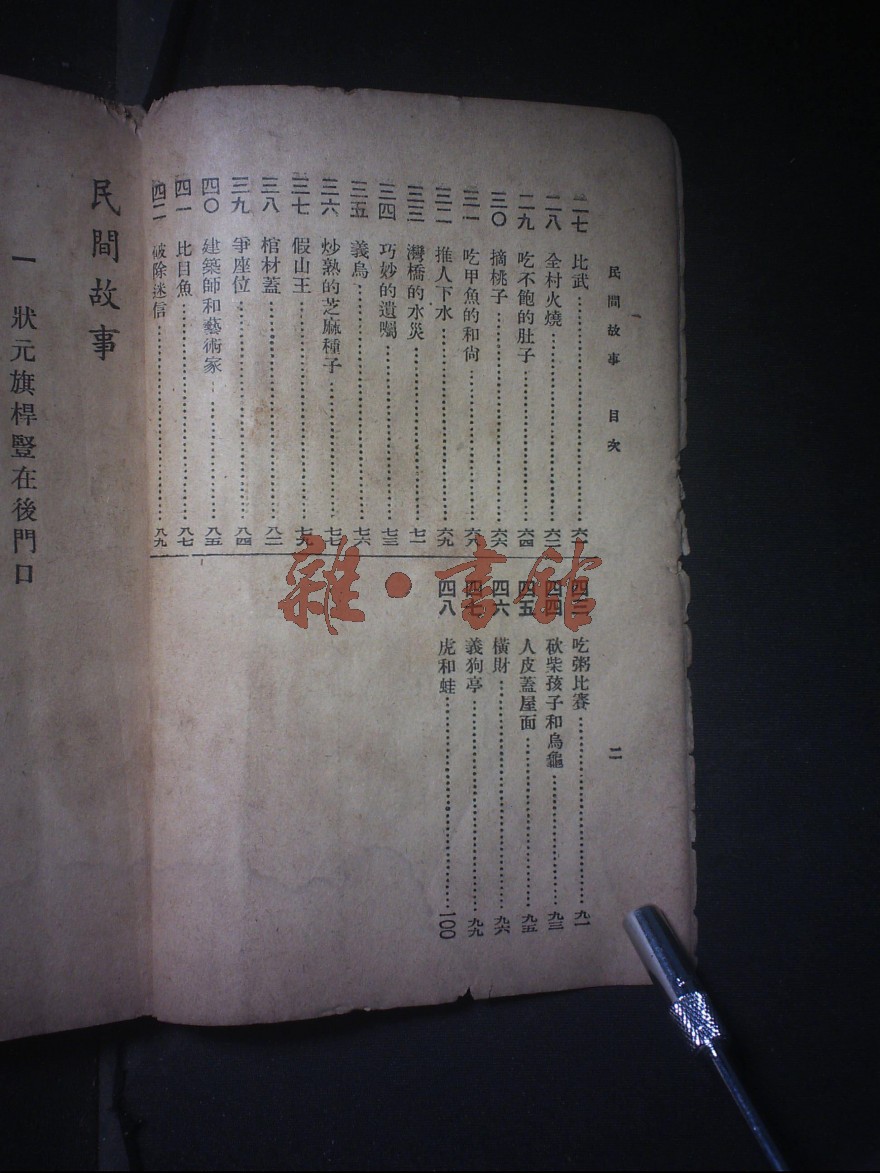 民間故事 目次
二
二七 比武 六一
二八 全村火燒 六二
二九 吃不飽的肚子 六四
三〇 摘桃子 六六
三一 吃甲魚的和尚 六八
三二 推人下水 六九
三三 灣橋的水災 七一
三四 巧妙的遺囑 七三
三五 義烏 七六
三六 炒熟的芝麻種子 七七
三七 假山王 七九
三八 棺材蓋 八二
三九 爭座位 八四
四〇 建築師和藝術家 八五
四一 比目魚 八七
四二 破除迷信 八九
四三 吃粥比賽 九一
四四 砍柴孩子和烏龜 九三
四五 人皮蓋屋面 九五
四六 橫財 九六
四七 義狗亭 九九
四八 虎和蛙 100
民間故事
一 狀元旗桿豎在後門口
雜·書館